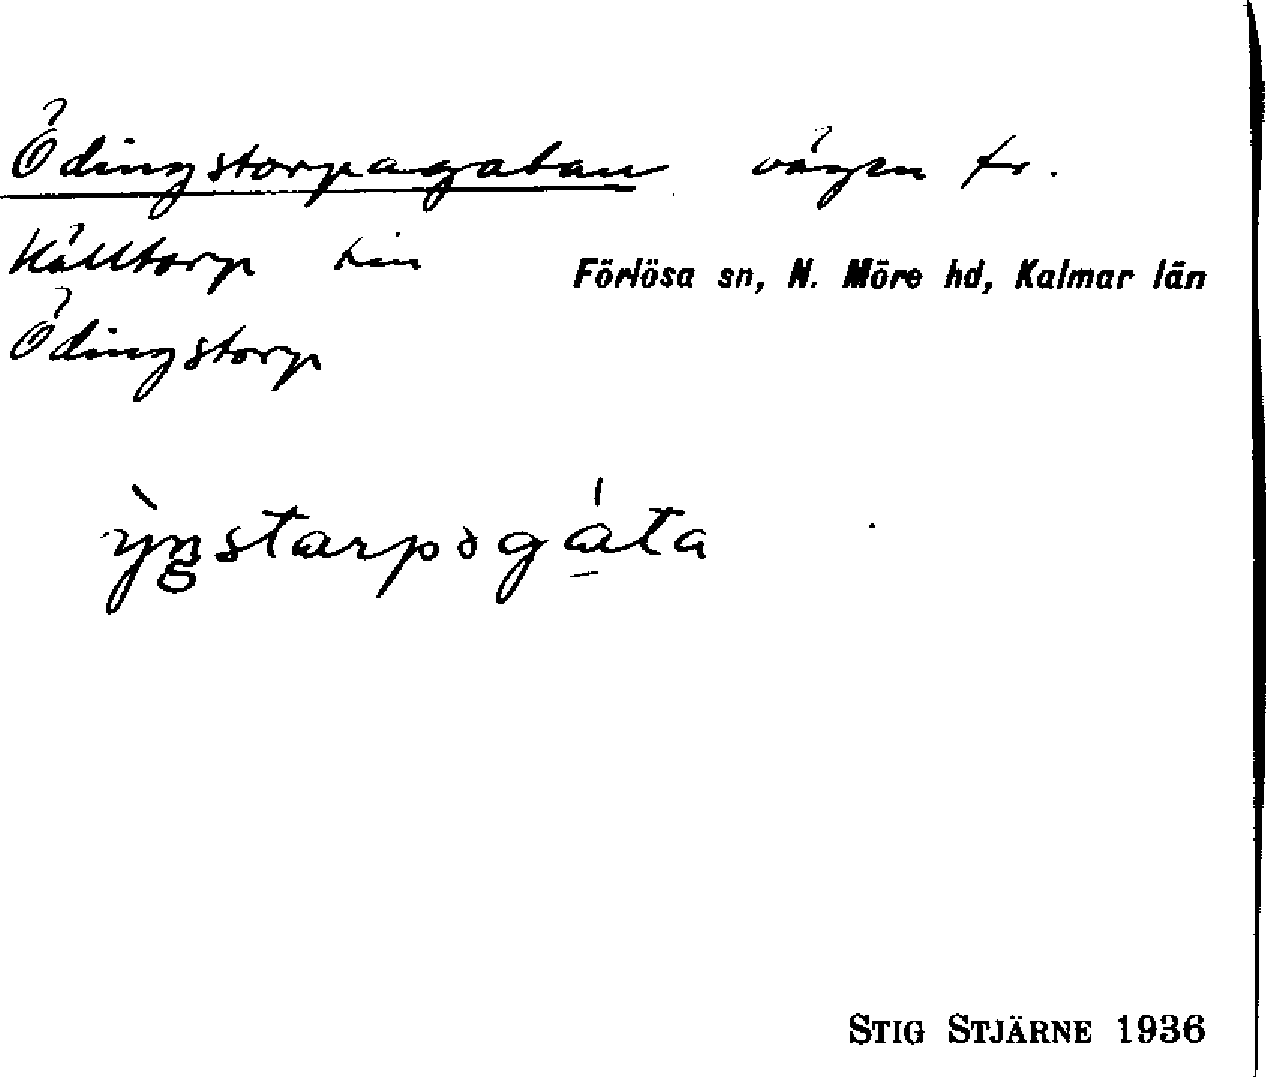 Ödingstorpagatan vägen fr.
Källtorp
Förlösa sn, N. Möre hd, Kalmar län
Ödingstorp
STIG STJÄRNE 1936